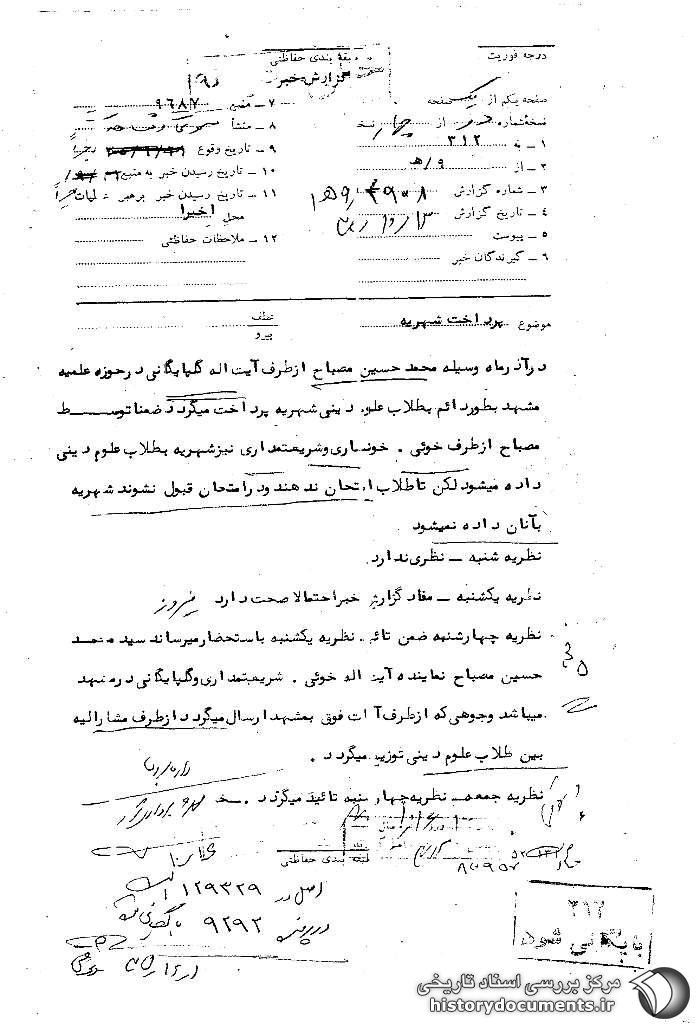 درجه فوریت
طبقه بندی حفاظتی
گزارش خبر
صفحه یکم از یک صفحه
نسخه شماره از چهار نسخه
۱ ـ به ۳۱۲
۲ ـ از ۹/ه
۳ ـ شماره گزارش
۴ ـ تاریخ گزارش
۵ ـ پیوست
۶ ـ گیرندگان خبر
۷ ـ منبع ۹۶۸۷
۸ ـ منشأ
۹ ـ تاریخ وقوع
۱۰ ـ تاریخ رسیدن خبر به منبع
۱۱ ـ تاریخ رسیدن خبر برهبر عملیات
محل اخیرا
۱۲ ـ ملاحظات حفاظتی
موضوع پرداخت شهریه
عطف
پیرو
در آذرماه وسیله محمد حسین مصباح از طرف آیت اله گلپایگانی در حوزه علمیه
مشهد بطور دائم بطلاب علوم دینی شهریه پرداخت میگردد ضمنا توسط
مصباح از طرف خوئی . خونساری و شریعتمداری نیز شهریه بطلاب علوم دینی
داده میشود لکن تا طلاب امتحان ندهند و در امتحان قبول نشوند شهریه
بآنان داده نمیشود
نظریه شنبه ـ نظری ندارد
نظریه یکشنبه ـ مفاد گزارش خبر احتمالا صحت دارد
نظریه چهارشنبه ضمن تائید نظریه یکشنبه باستحضار میرساند سید محمد
حسین مصباح نماینده آیت اله خوئی . شریعتمداری و گلپایگانی در مشهد
میباشد وجوهی که از طرف آیات فوق بمشهد ارسال میگردد از طرف مشارالیه
بین طلاب علوم دینی توزیع میگردد .
نظریه جمعه ـ نظریه چهارشنبه تائید میگردد .
طبقه بندی حفاظتی
اصل در ۱۲۹۳۲۹
در پرونده ۹۲۹۲ بایگانی شود
۳۱۲
بایگانی شود
مرکز بررسی اسناد تاریخی
historydocuments.ir